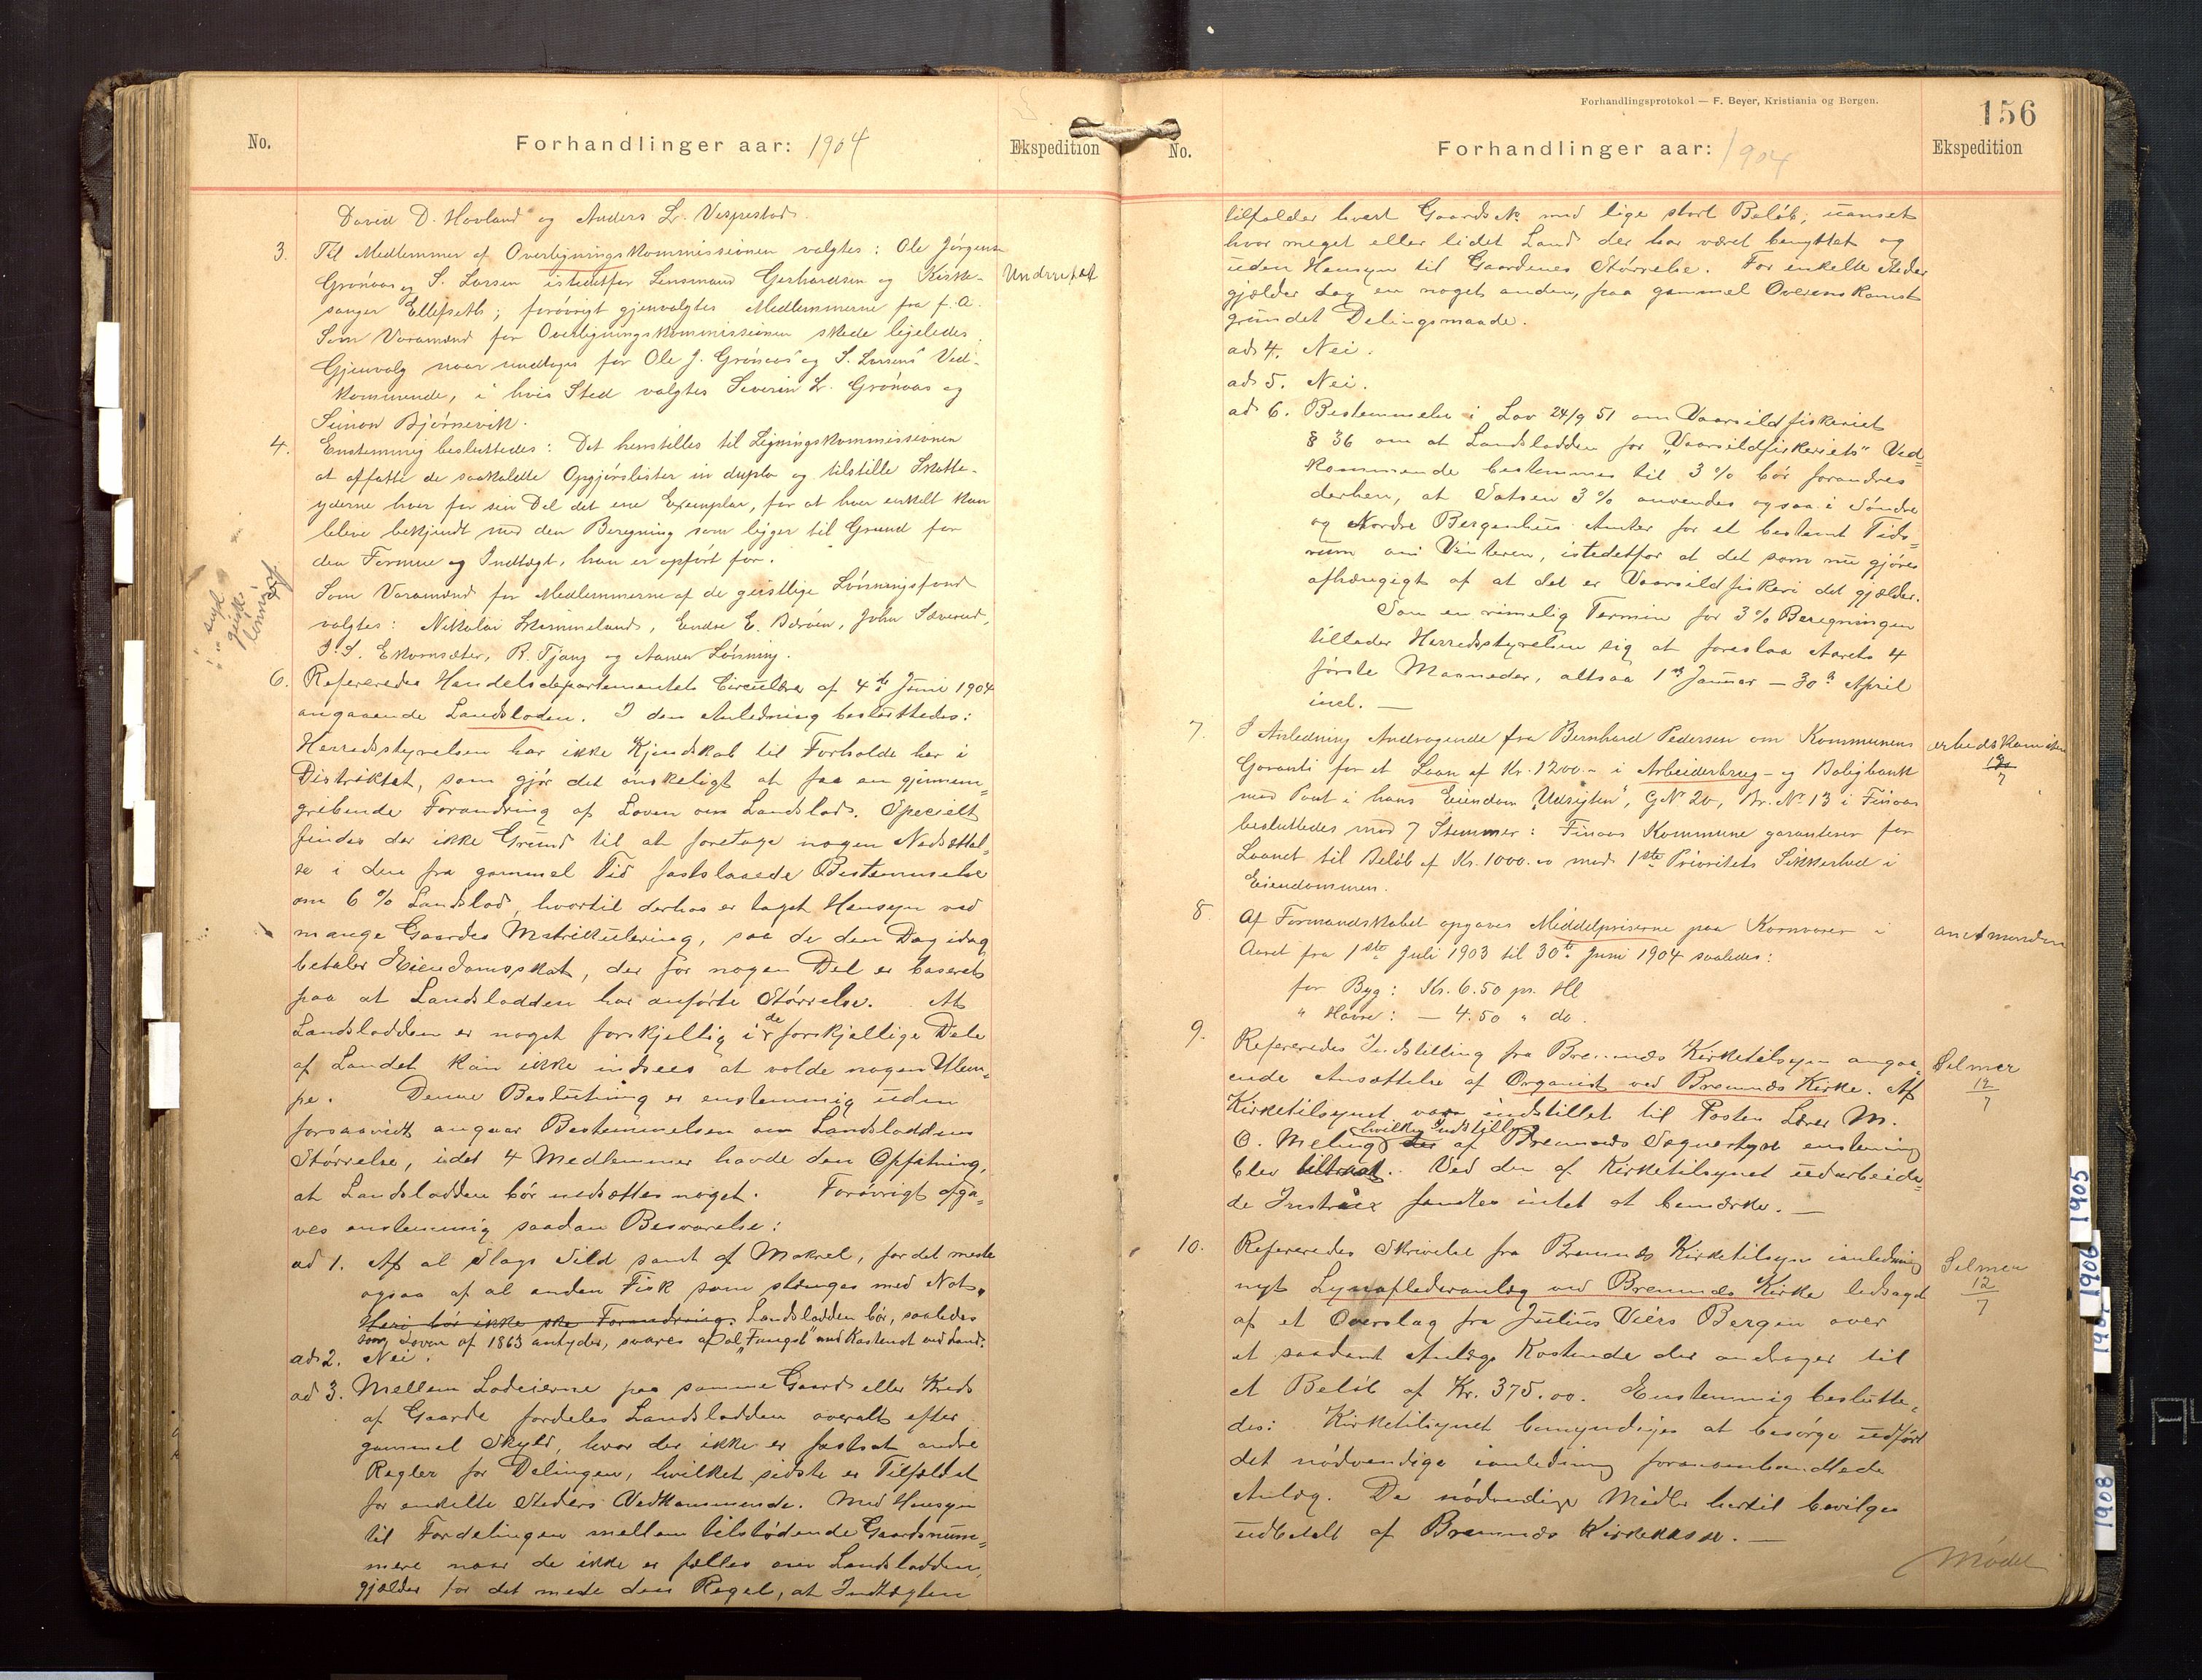 No.
Forhandlinger aar: 1904
Ekspedition
David D. Hovland og Anders L. Vespestad.
3. Til Medlemmer af Overligningskommissionen valgtes: Ole Jørgensen
Grönaas og S. Larsen istedetfor Lensmand Gerhardsen og Kirke-
sanger Ellefseth; forøvrigt gjenvalgtes Medlemmerne fra f. A.
Som Varamænd for Overligningskommissionen skede ligeledes
Gjenvalg naar undtages for Ole J. Grönaas' og S. Larsens Ved-
kommende, i hvis Sted valgtes Severin L. Grönaas og
Simon Bjørnevik.
4. Enstemmig besluttedes: Det henstilles til Ligningskommissionen
at affatte de saakaldte Opgjörslister in duplo og tilstille Skatte-
yderne hver for sin Del det ene Exemplar, for at hver enkelt kan
bleve bekjendt med den Beregning som ligger til Grund for
den Formue og Indtægt, han er opført for.
Som Varamænd for Medlemmerne af de geistlige Lönningsfond
valgtes: Nikolai Skimmeland, Endre E. Børøen, John Sæverud,
S. S. Ekornsæter, R. Tjang og Aamen Lönning.
6. Refereredes Handelsdepartementets Circulære af 4de Juni 1904
angaaende Landsloden. I den Anledning besluttedes:
Herredsstyrelsen har ikke Kjendskab til Forholde her i
Distriktet, som gjør det ønskeligt at faa en gjennem-
gribende Forandring af Loven om Landslod. Specielt
findes der ikke Grund til at foretage nogen Nedsættel-
se i den fra gammel Tid fastslaaede Bestemmelse
om 6 % Landslod, hvortil derhos er taget Hensyn ved
mange Gaardes Matrikulering, saa de den Dag idag
betaler Eiendomsskat, der for nogen Del er baseret
paa at Landslodden har anførte Størrelse. At
Landslodden er noget forskjellig i de forskjellige Dele
af Landet kan ikke indsees at volde nogen Ulem-
pe. Denne Beslutning er enstemmig uden
forsaavidt angaar Bestemmelsen om Landsloddens
Størrelse, idet 4 Medlemmer havde den Opfatning,
at Landslodden bør nedsættes noget. Forøvrigt afga-
ves enstemmig saadan Besvarelse:
ad 1. Af al Slags Sild samt af Makrel, for det meste
ogsaa af al anden Fisk som stænges med Not.
Heri bør ikke ske Forandring. Landslodden bør, saaledes
som Loven af 1863 antyder, svares af al "Fangst" med Kastenot ved Land.
ad 2. Nei.
ad 3. Mellem Lodeierne paa samme Gaard eller Kreds
af Gaarde fordeles Landslodden overalt efter
gammel Skyld, hvor der ikke er fastsat andre
Regler for Delingen, hvilket sidste er Tilfældet
for enkelte Steders Vedkommende. Med Hensyn
til Fordelingen mellem tilstødende Gaardsnum-
mere naar de ikke er fælles om Landslodden,
gjælder for det meste den Regel, at Indtægten
Forhandlingsprotokol — F. Beyer, Kristiania og Bergen.
156
No.
Forhandlinger aar: 1904
Ekspedition
tilfalder hvert Gaards No. med lige stort Beløb, uanset
hvor meget eller lidet Land der har været benyttet og
uden Hensyn til Gaardenes Størrelse. For enkelte Steder
gjælder dog en noget anden, paa gammel Overenskomst
grundet Delingsmaade.
ad 4. Nei.
ad 5. Nei.
ad 6. Bestemmelse i Lov 24/9 51 om Vaarsildfiskeriet
§ 36 om at Landslodden for "Vaarsildfiskeriets" Ved-
kommende bestemmes til 3 % bør forandres
derhen, at Satsen 3 % anvendes ogsaa i Søndre
og Nordre Bergenhus Amter for et bestemt Tids-
rum om Vinteren, istedetfor at det som nu gjøres
afhængigt af at det er Vaarsildfiskeri det gjælder.
Som en rimelig Termin for 3 % Beregningen
tillader Herredsstyrelsen sig at foreslaa Aarets 4
første Maaneder, altsaa 1ste Januar — 30de April
incl. —
7. I Anledning Andragende fra Bernhard Pedersen om Kommunens
Garanti for et Laan af Kr. 1200.- i Arbeiderbrug- og Boligbank
med Pant i hans Eiendom "Udsyten", G.No 20, Br. No. 13 i Finaas
besluttedes med 7 Stemmer: Finaas Kommune garanterer for
Laanet til Beløb af Kr. 1000.00 mod 1ste Prioritets Sikkerhed i
Eiendommen.
8. Af Formandskabet opgaves Middelpriserne paa Kornvarer i
Aaret fra 1ste Juli 1903 til 30te Juni 1904 saaledes:
for Byg: Kr. 6.50 pr. Hl
" Havre: — 4.50 " do.
9. Refereredes Indstilling fra Bremnes Kirketilsyn angaa-
ende Ansættelse af Organist ved Bremnes Kirke. Af
Kirketilsynet var indstillet til Posten Lærer M.
O. Meling hvilken Indstilling af Bremnes Sognestyre enstemmig
blev tiltraadt. Ved den af Kirketilsynet udarbeide-
de Instrux fandtes intet at bemærke. —
10. Refereredes Skrivelse fra Bremnes Kirketilsyn ianledning
nyt Lynaflederanlæg ved Bremnes Kirke ledsaget
af et Overslag fra Julius Viers Bergen over
et saadant Anlægs Kostende der andrager til
et Beløb af Kr. 375.00. Enstemmig beslutte-
des: Kirketilsynet bemyndiges at besørge udført
det nödvendige ianledning foranomhandlede
Anlæg. De nödvendige Midler hertil bevilges
udbetalt af Bremnes Kirkekasse. —
Selmer
12
7
Selmer
12
7
Mødet
1905
1906
1908